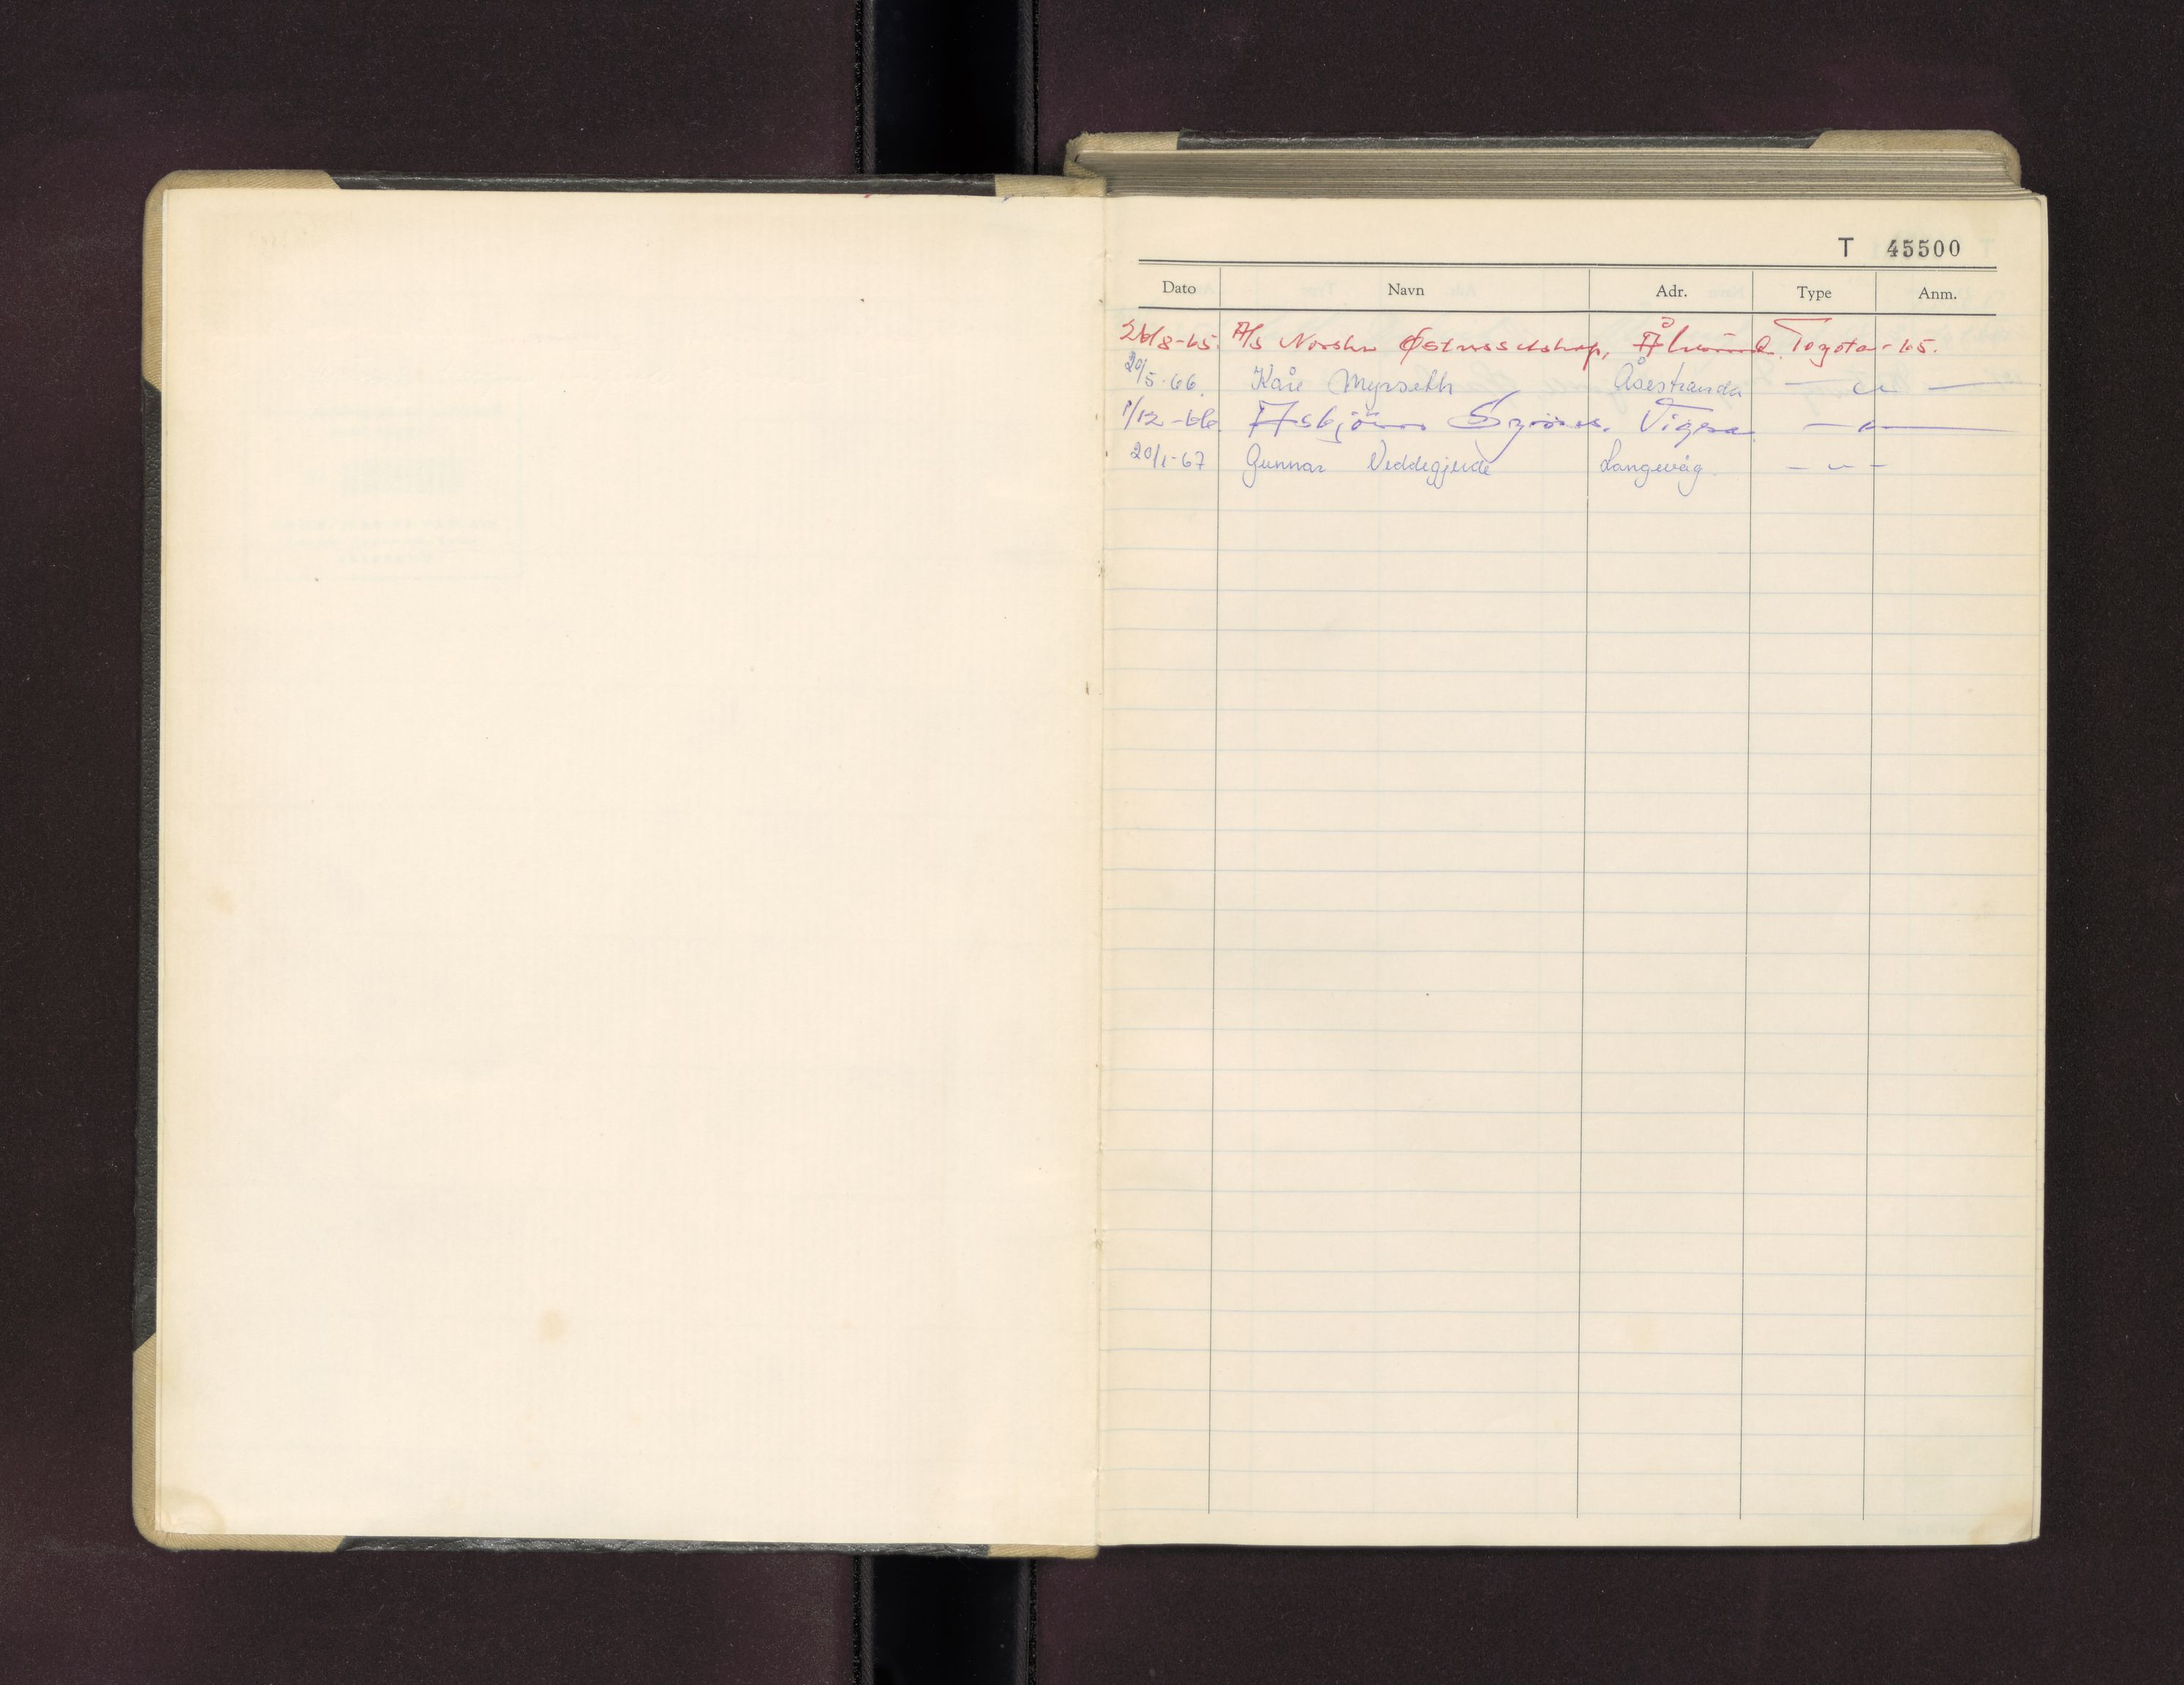 T 45500
Dato Navn Adr. Type Anm.
26/8-65. A/s Norske Ålesund. Toyota - 65.
20/5-66. Kåre Myrseth Åsestranda — " —
1/12-66 Asbjörn Vigra — " —
20/1-67 Gunnar Veddegjerde Langevåg. — " —